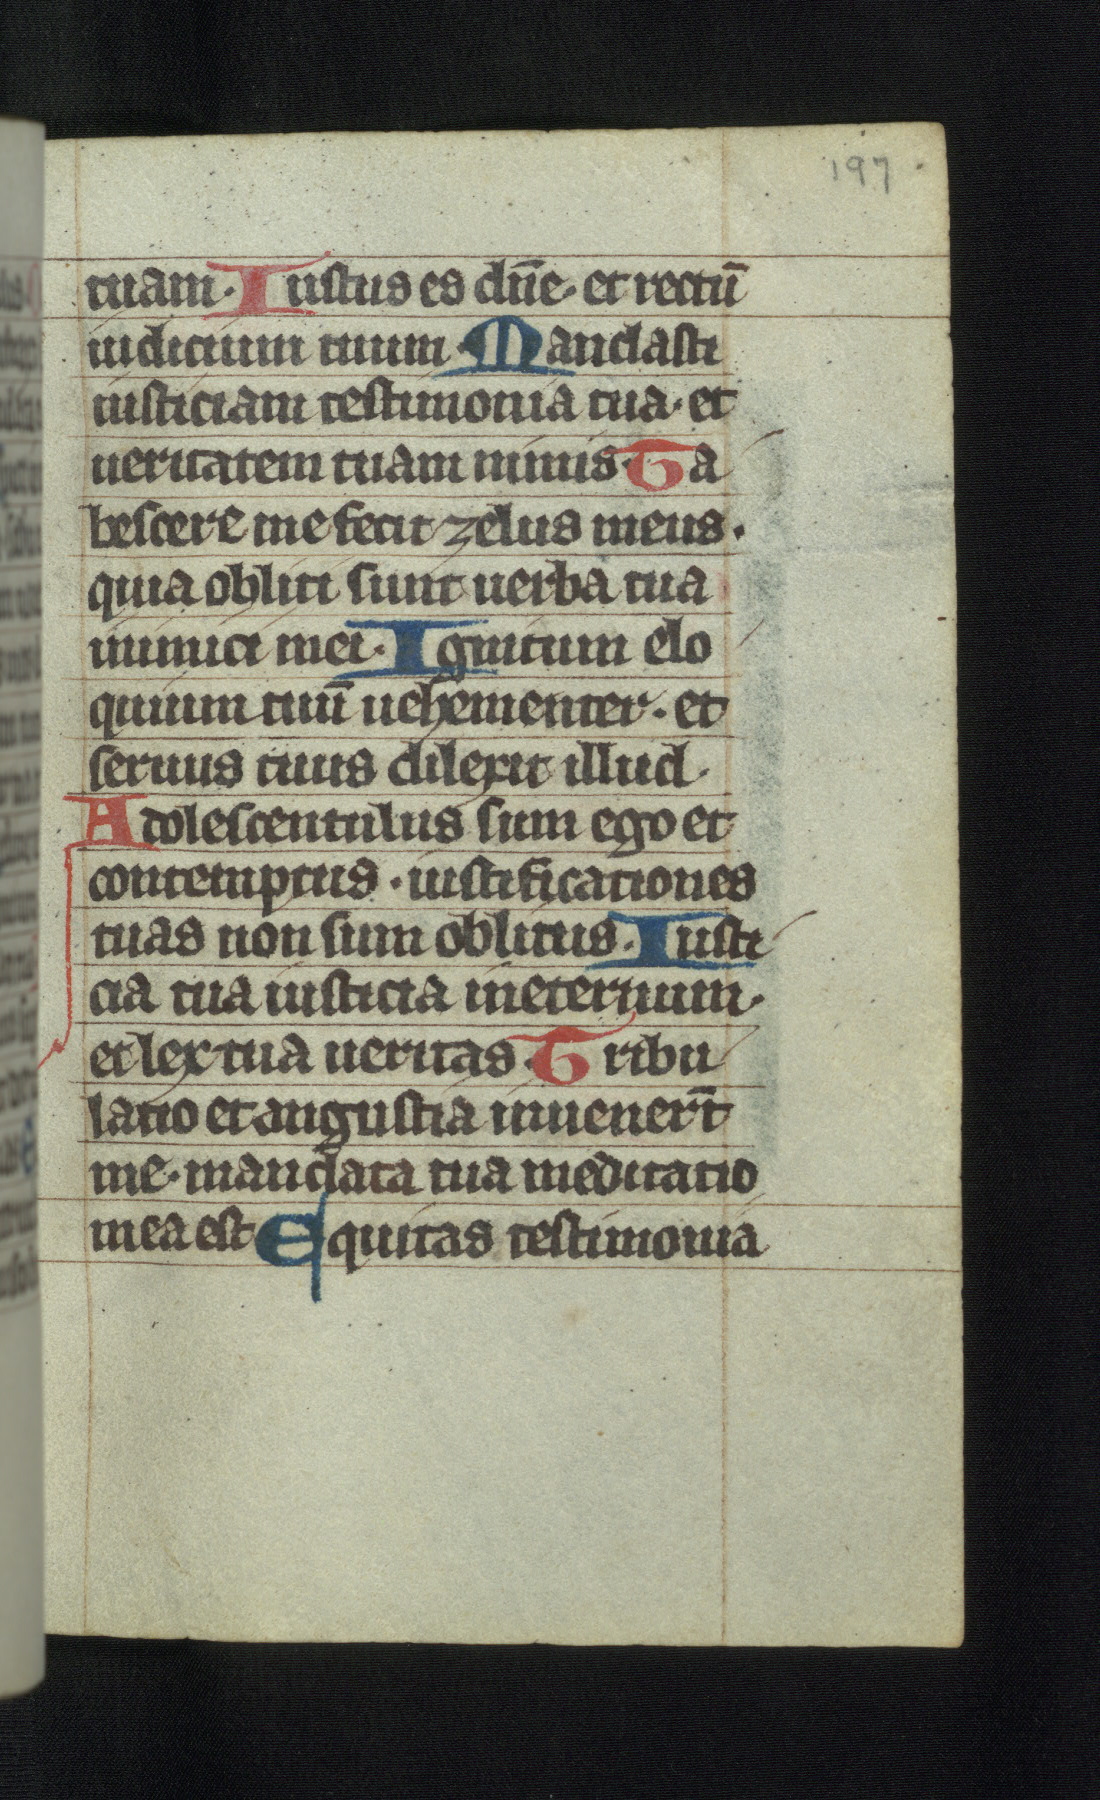 197
tuam. Iustus es dn̄e. et rectū
iudicium tuum. Mandasti
iusticiam testimonia tua. et
ueritatem tuam nimis. Ta
bescere me fecit zelus meus.
quia obliti sunt uerba tua
inimici mei. Ignitum elo
quium tuū uehementer. et
seruus tuus dilexit illud.
Adolescentulus sum ego et
contemptus. iustificationes
tuas non sum oblitus. Iusti
cia tua iusticia ineternum.
et lex tua ueritas. Tribu
latio et angustia inuener̄t
me. mandata tua meditatio
mea est Equitas testimonia